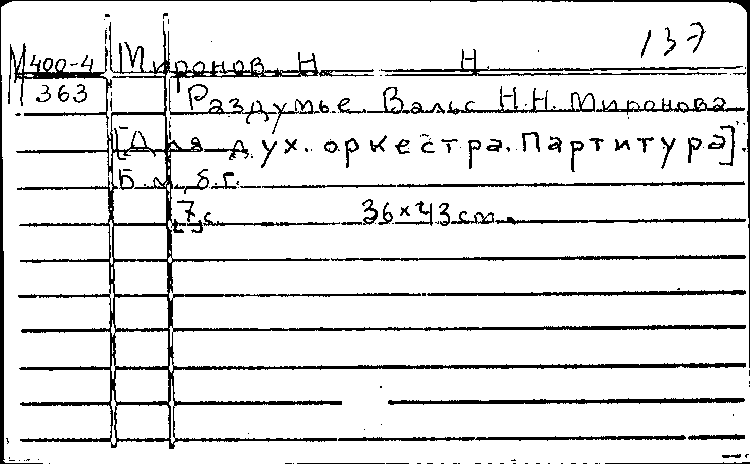 137
М 400-4 Миронов, Н. Н
363 Раздумье. Вальс Н.Н. Миронова
[Для дух. оркестра. Партитура].
Б.м., б.г.
[7] с. 36×43 см.